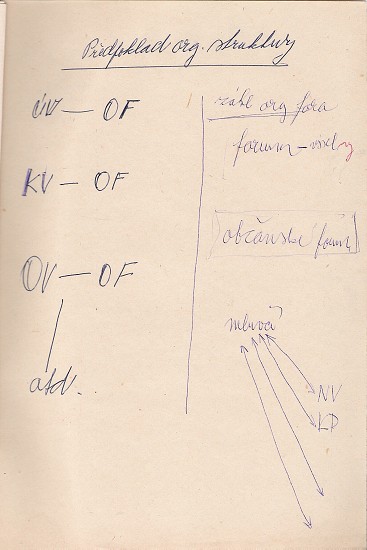 Předpoklad org. struktury
ÚV — OF
KV — OF
OV — OF
atd.
zákl org fóra
forum — 
občanské fórum
mluvčí
NV
KD